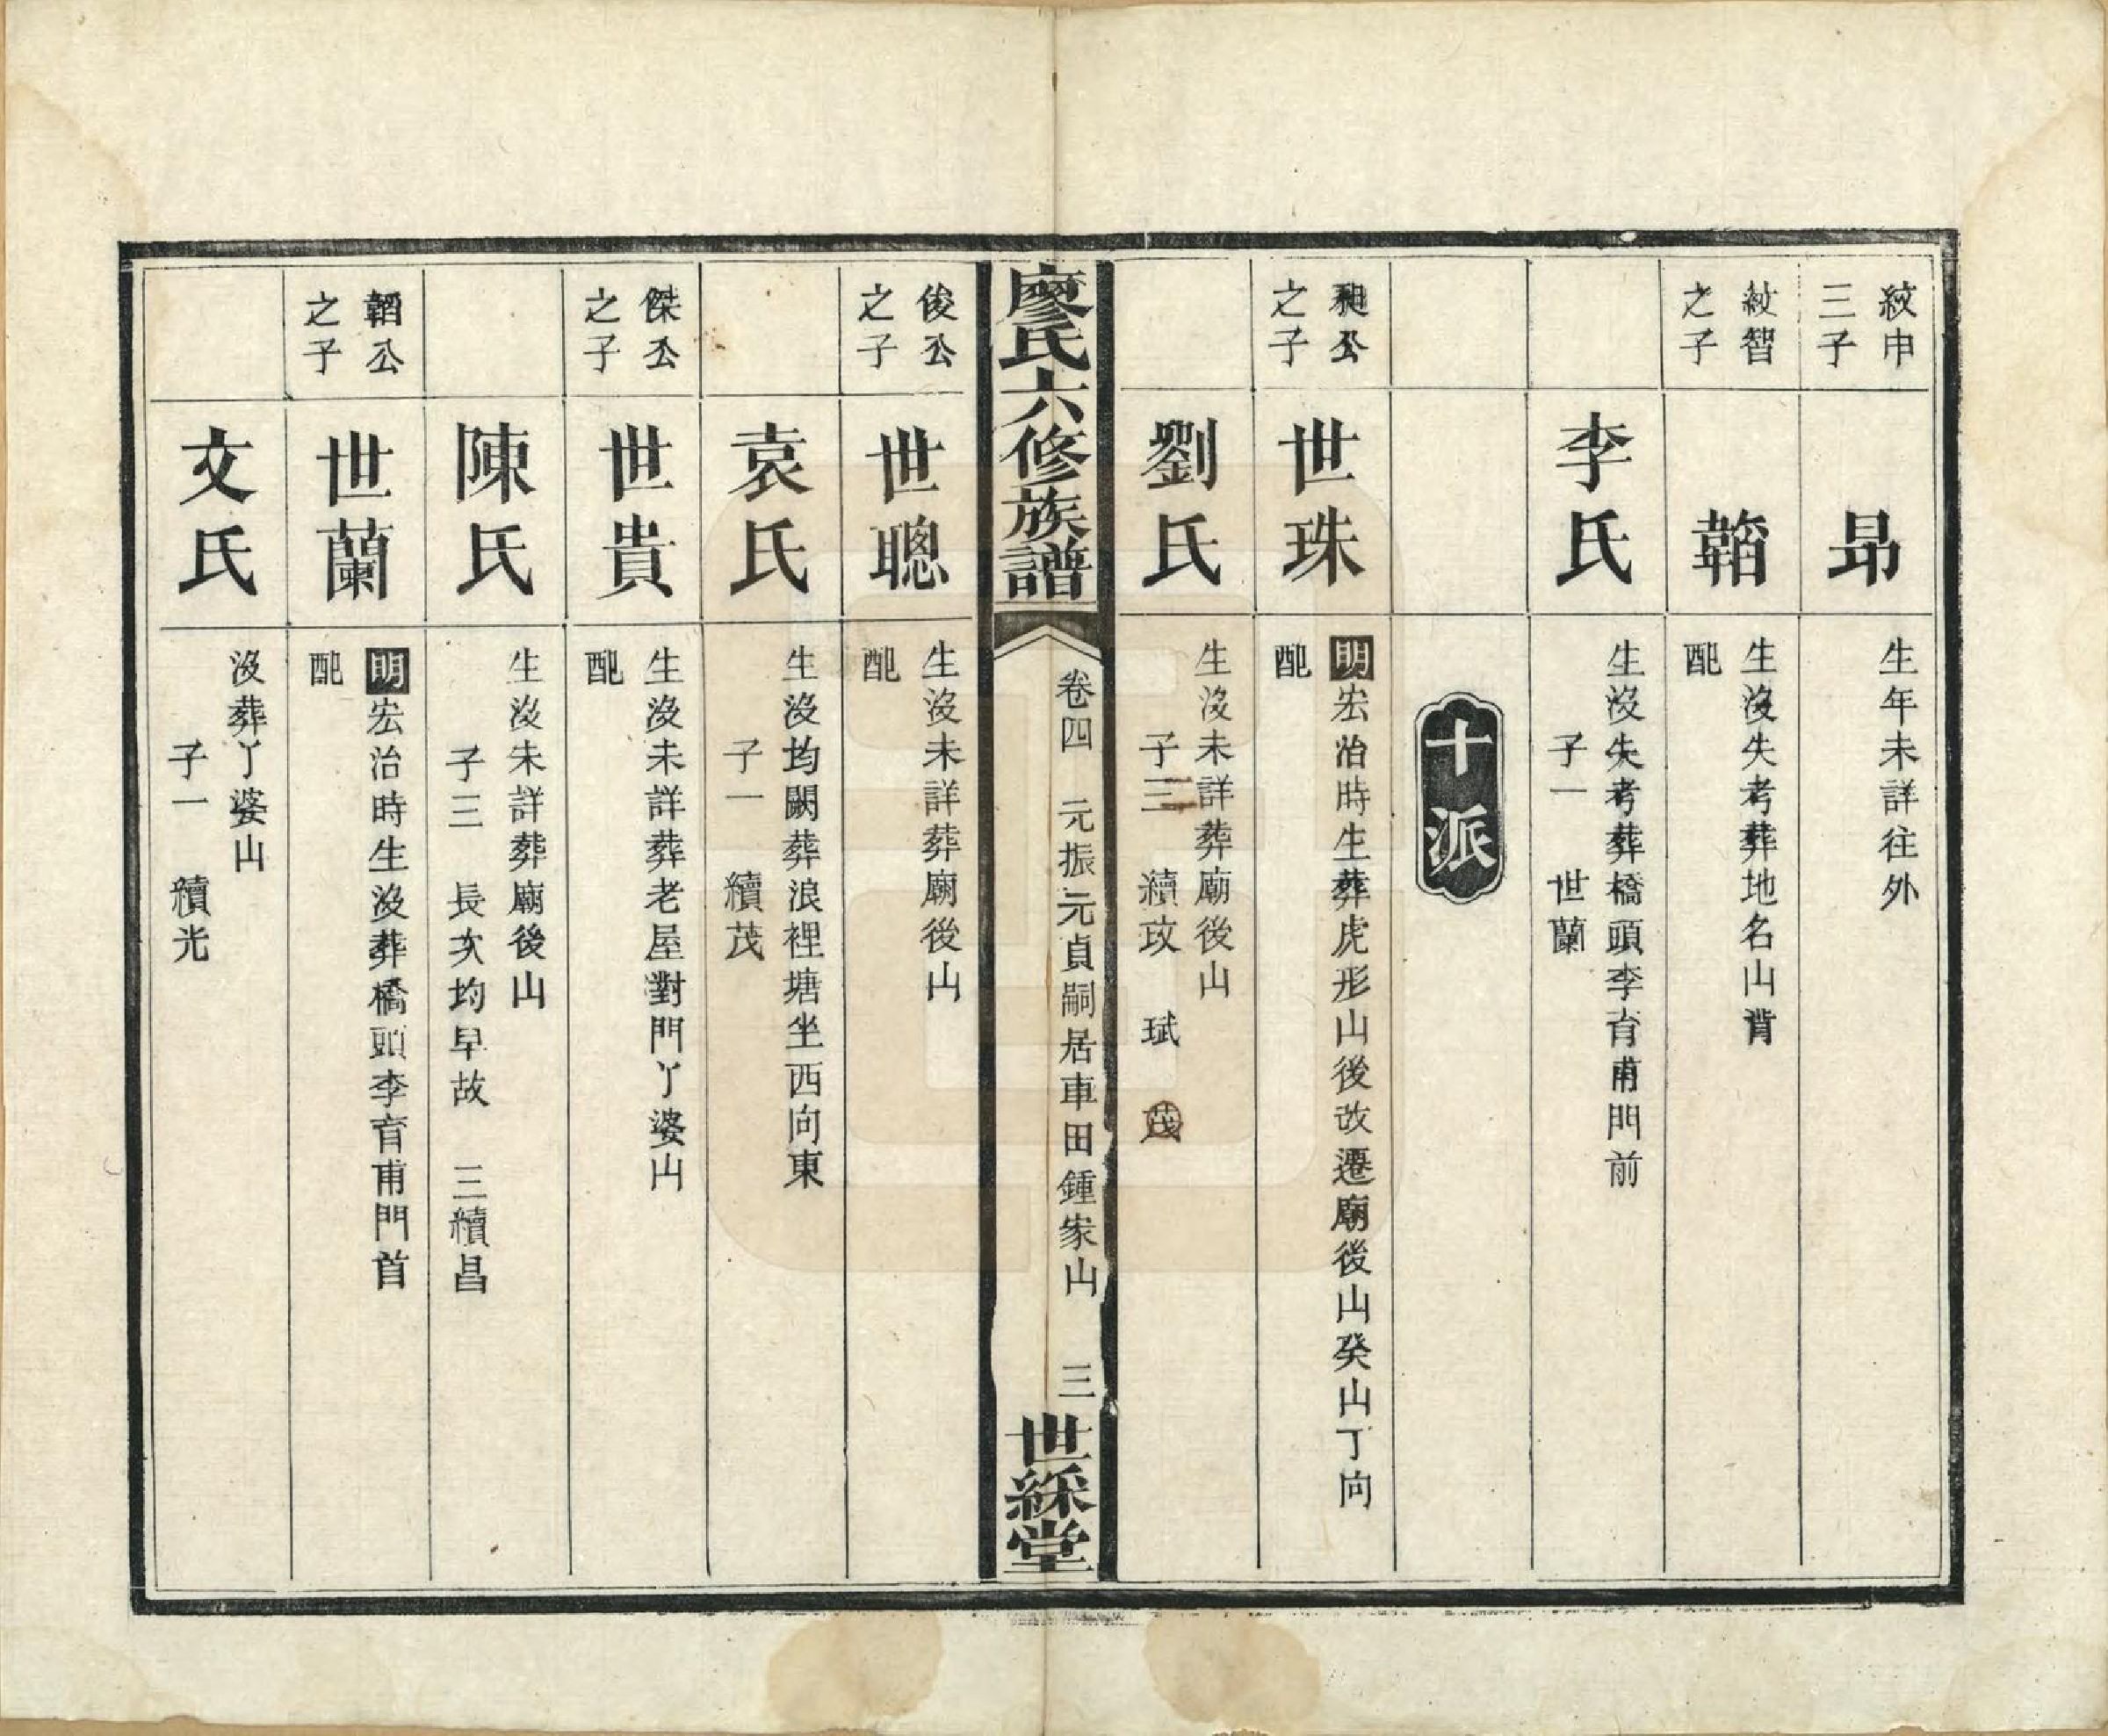 紋申
三子
昂
生年未詳往外
紋智
之子
韜
生沒失考葬地名山背
配
李氏
生沒失考葬橋頭李育甫門前
子一　世蘭
十派
昶公
之子
世珠
明宏治時生葬虎形山後改遷廟後山癸山丁向
配
劉氏
生沒未詳葬廟後山
子三　續玟　珷　茂
廖氏六修族譜
卷四　元振元貞嗣居車田鍾家山　三
世綵堂
俊公
之子
世聰
生沒未詳葬廟後山
配
袁氏
生沒均闕葬浪裡塘坐西向東
子一　續茂
傑公
之子
世貴
生沒未詳葬老屋對門丫婆山
配
陳氏
生沒未詳葬廟後山
子三　長次均早故　三續昌
韜公
之子
世蘭
明宏治時生沒葬橋頭李育甫門首
配
文氏
沒葬丫婆山
子一　續光